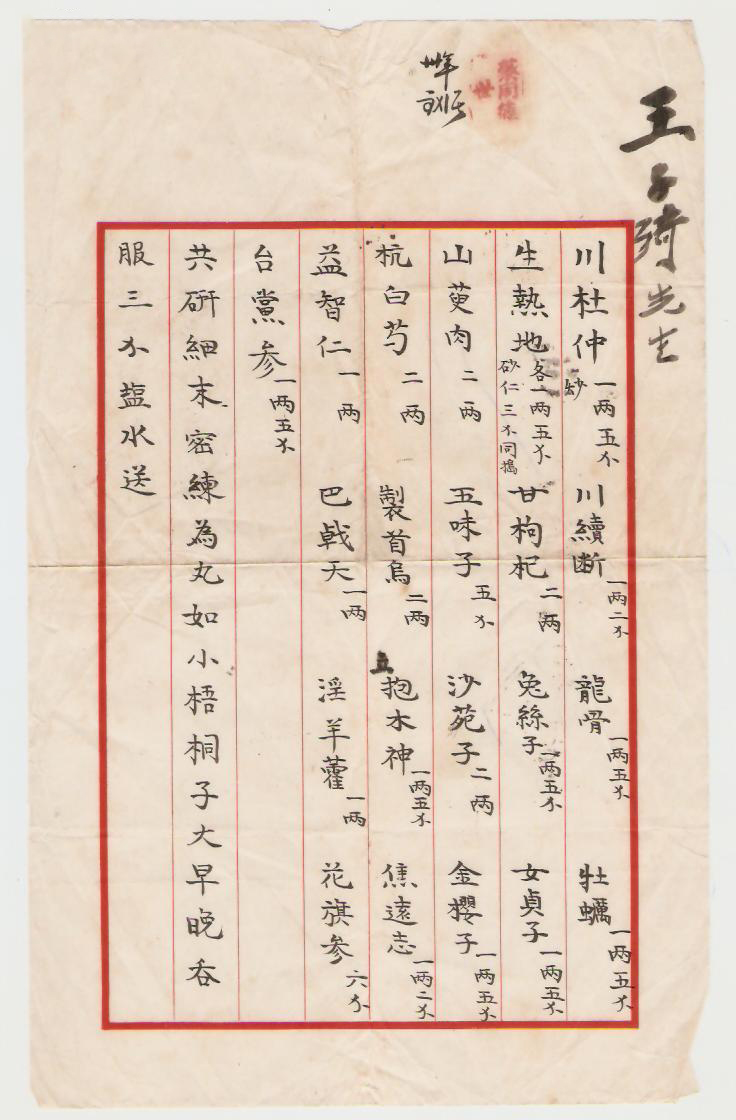 王子琦先生
川杜仲 炒 一两五分 川續断 一两二分 龍骨 一两五分 牡蠣 一两五分
生熟地 各一两五分 砂仁三分同搗 甘枸杞 二两 兔絲子 一两五分 女貞子 一两五分
山萸肉 二两 五味子 五分 沙苑子 二两 金櫻子 一两五分
杭白芍 二两 製首烏 二两 抱木神 一两五分 焦遠志 一两二分
益智仁 一两 巴戟天 一两 淫羊藿 一两 花旗参 六分
台黨参 一两五分
共研細末密練為丸如小梧桐子大早晚吞
服三分盐水送